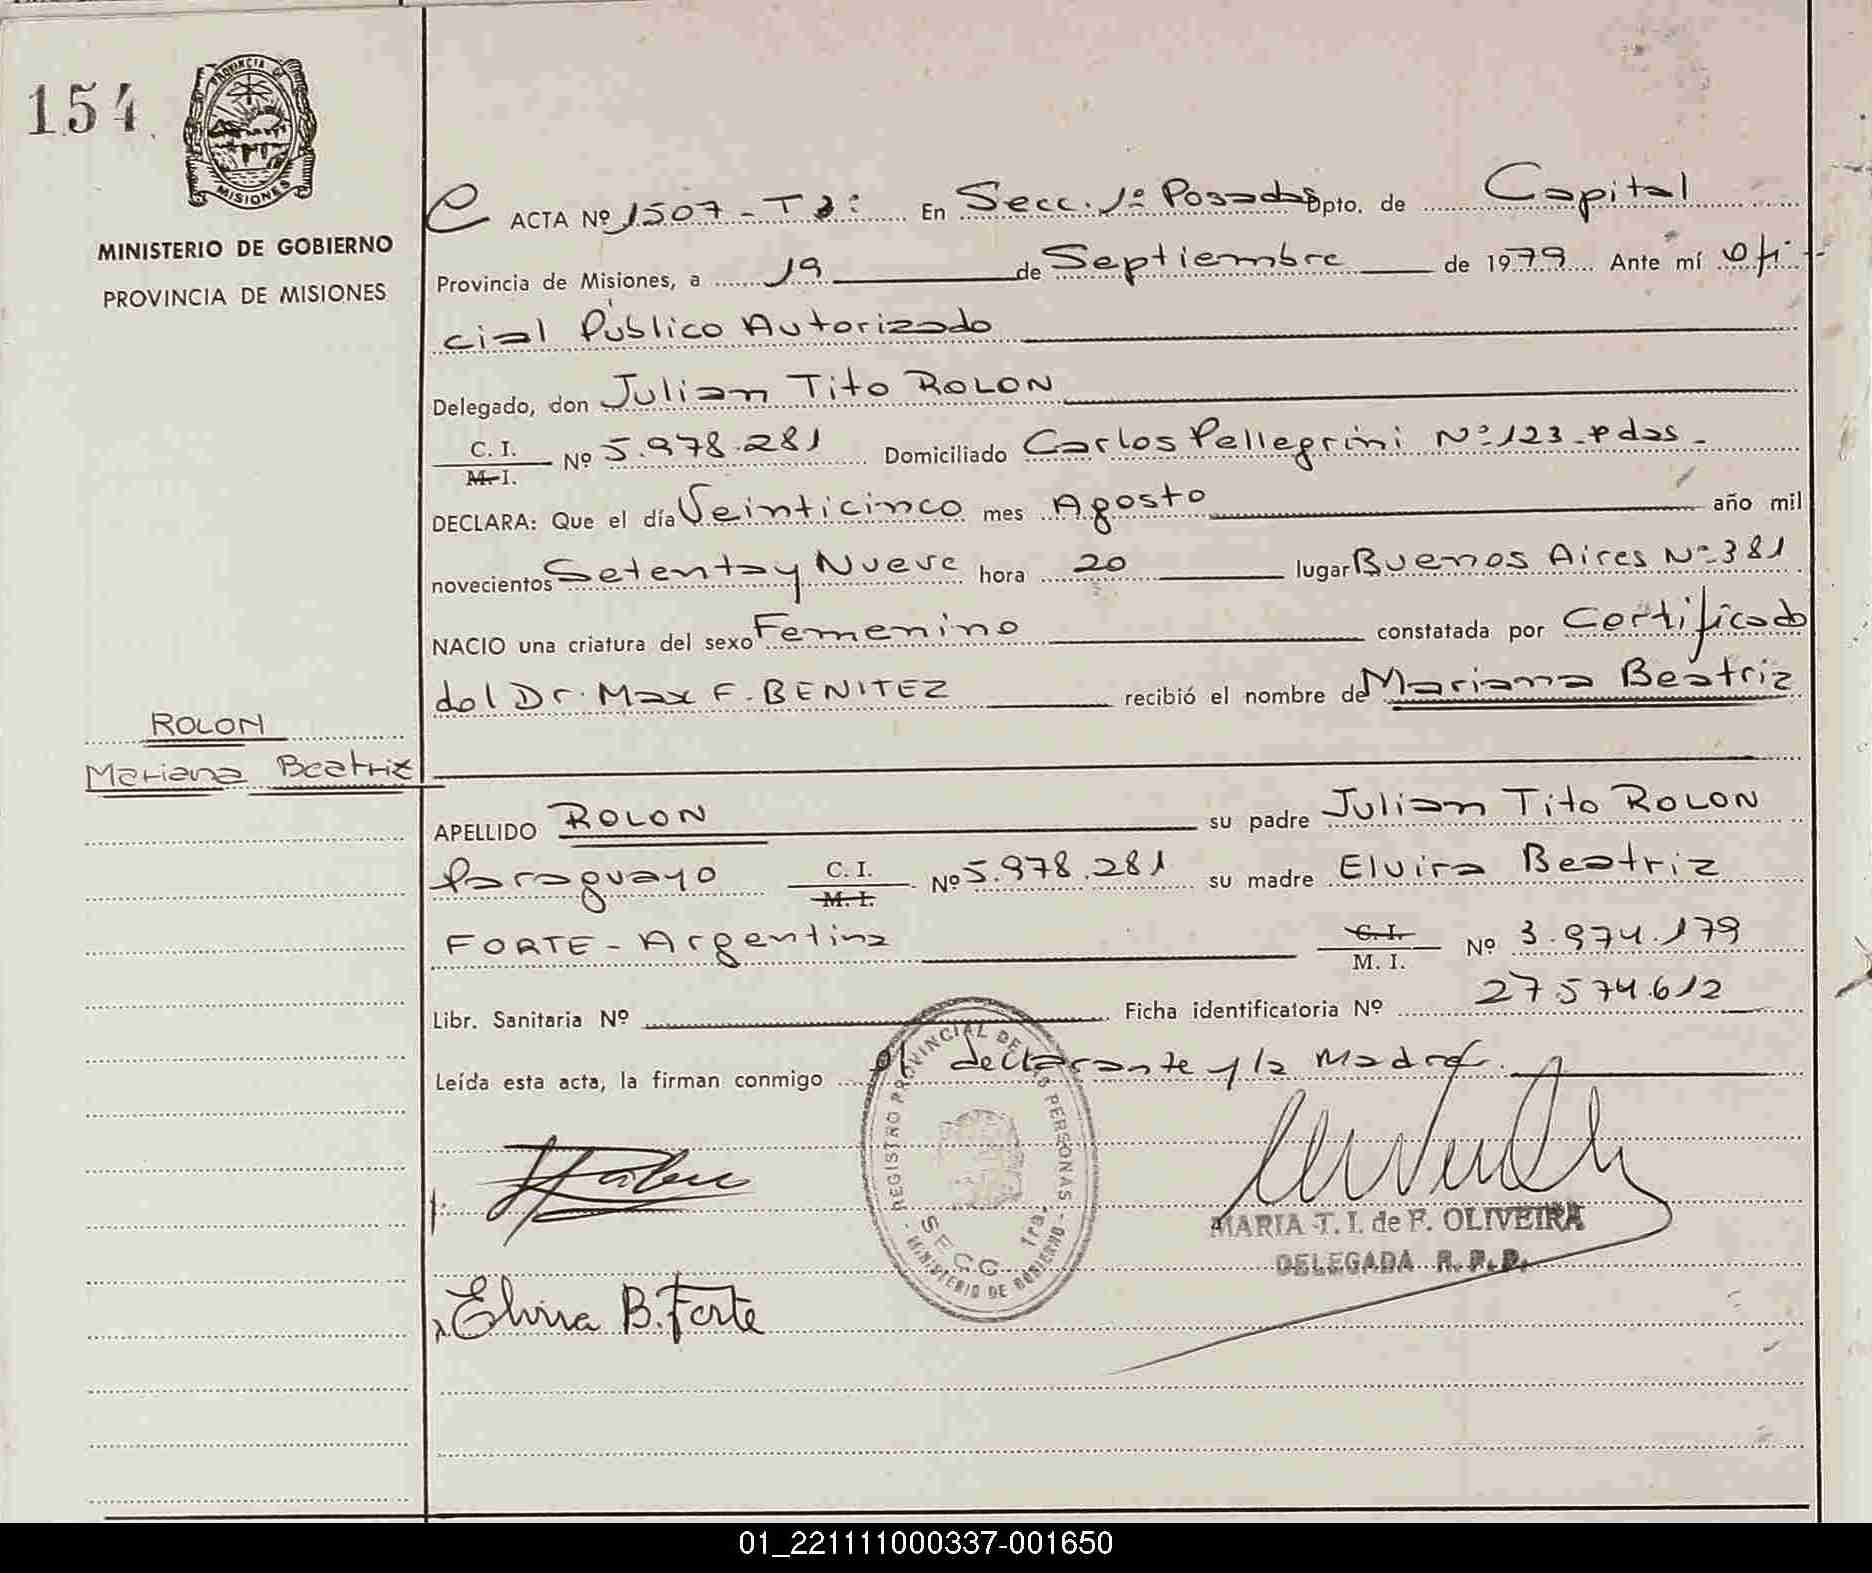 154
PROVINCIA DE
MISIONES
MINISTERIO DE GOBIERNO
PROVINCIA DE MISIONES
ROLON
Mariana Beatriz
ACTA Nº 1507 - T 3º En Secc. 1º Posadas Dpto. de Capital
Provincia de Misiones, a 19 de Septiembre de 1979 Ante mí Ofi-
cial Público Autorizado
Delegado, don Julian Tito ROLON
C. I.
M. I. Nº 5.978.281 Domiciliado Carlos Pellegrini Nº 123 - Pdas -
DECLARA: Que el día Veinticinco mes Agosto año mil
novecientos Setenta y Nueve hora 20 lugar Buenos Aires Nº 381
NACIO una criatura del sexo Femenino constatada por Certificado
del Dr. Max F. BENITEZ recibió el nombre de Mariana Beatriz
APELLIDO ROLON su padre Julian Tito ROLON
Paraguayo C. I. M. I. Nº 5.978.281 su madre Elvira Beatriz
FORTE - Argentina C. I. M. I. Nº 3.974.179
Libr. Sanitaria Nº Ficha identificatoria Nº 27.574.612
Leída esta acta, la firman conmigo el declarante y la Madre.
REGISTRO PROVINCIAL DE LAS PERSONAS
SECC 1ra.
MINISTERIO DE GOBIERNO
MARIA T. I. de F. OLIVEIRA
DELEGADA R. P. P.
Elvira B. Forte
01_221111000337-001650